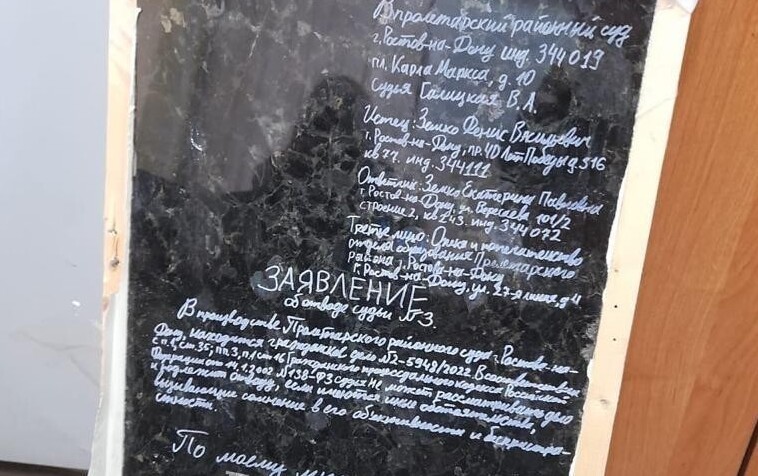 В пролетарский районный суд
г. Ростов-на-Дону инд. 344019
пл. Карла Маркса, д. 10
Судья Галицкая В.А.
Истец: Земко Денис Васильевич
г. Ростов-на-Дону, пр. 40 Лет Победы д. 316
кв 77. инд. 344111
Ответчик: Земко Екатерина Павловна
г. Ростов-на-Дону, ул. Вересаева 101/2
строение 2, кв 243. инд. 344072
Третье лицо: Опека и попечительство
отдела образования Пролетарского
района г. Ростова-на-Дону
г. Ростов-на-Дону, ул. 27-я линия, д 4
ЗАЯВЛЕНИЕ
об отводе судьи №3.
В производстве Пролетарского районного суда г. Ростова-на-
Дону, находится гражданское дело №2-5948/2022. В соответствии
с п. 1, ст. 35; пп. 3, п. 1 ст. 16 Гражданского процессуального кодекса Российской
Федерации от 14.11.2002 №138-ФЗ судья не может рассматривать дело
и подлежит отводу, если имеются иные обстоятельства,
вызывающие сомнение в его объективности и беспристра-
стности.
По моему